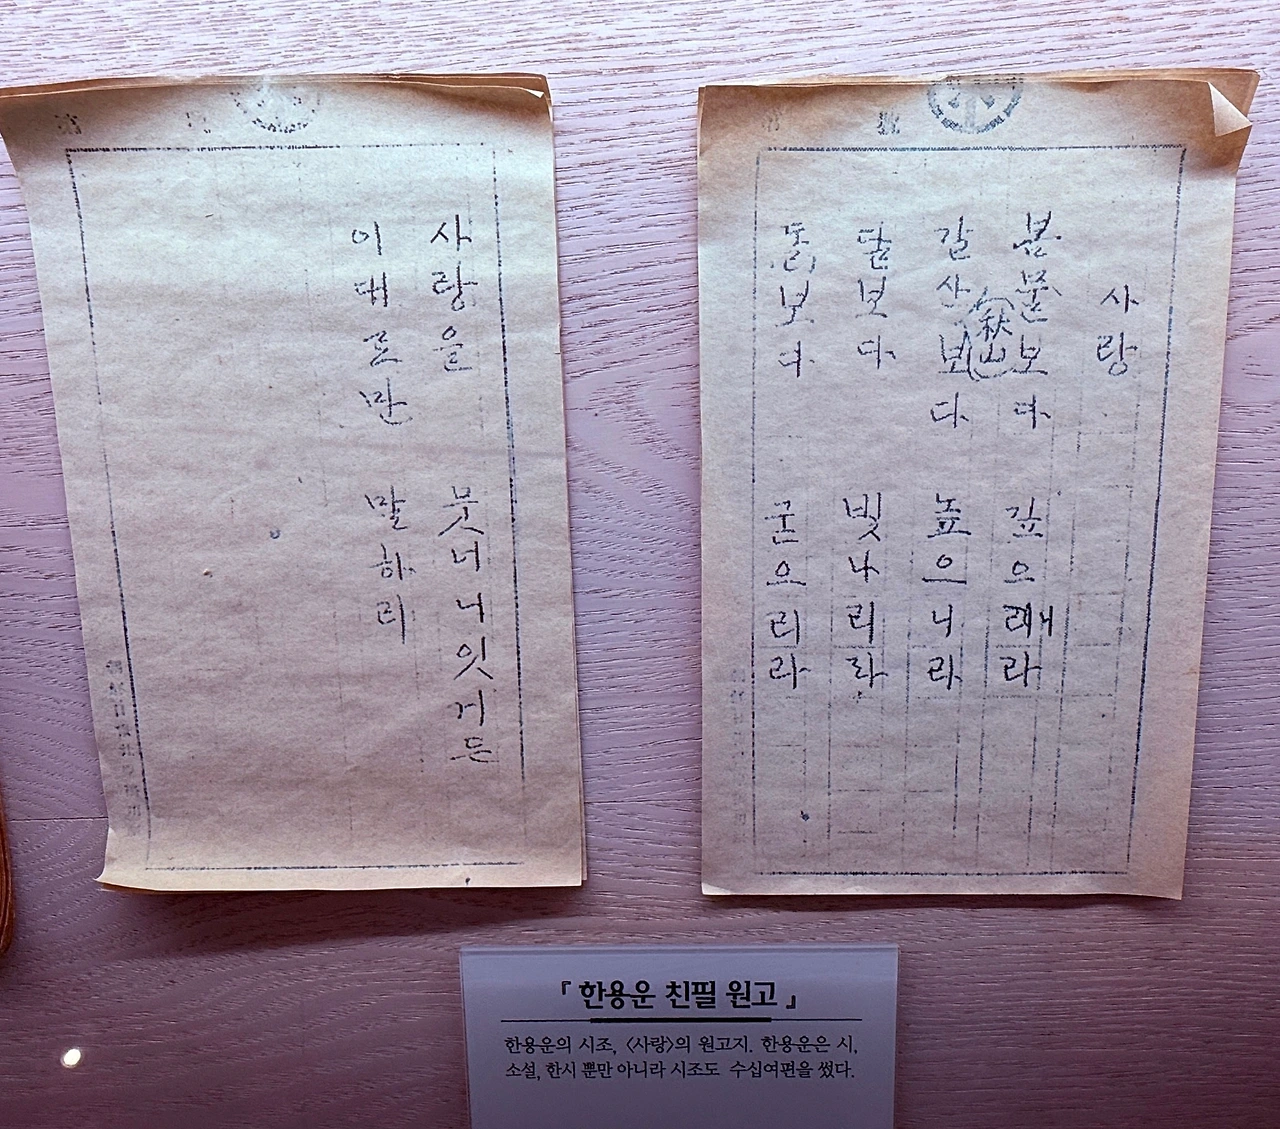 사랑
봄물보다 깊으니라
갈산(秋山)보다 높으니라
달보다 빗나리라
돌보다 굳으리라
사랑을 뭇너니잇거든
이대로만 말하리
『 한용운 친필 원고 』
한용운의 시조, 〈사랑〉의 원고지. 한용운은 시,
소설, 한시 뿐만 아니라 시조도 수십여편을 썼다.